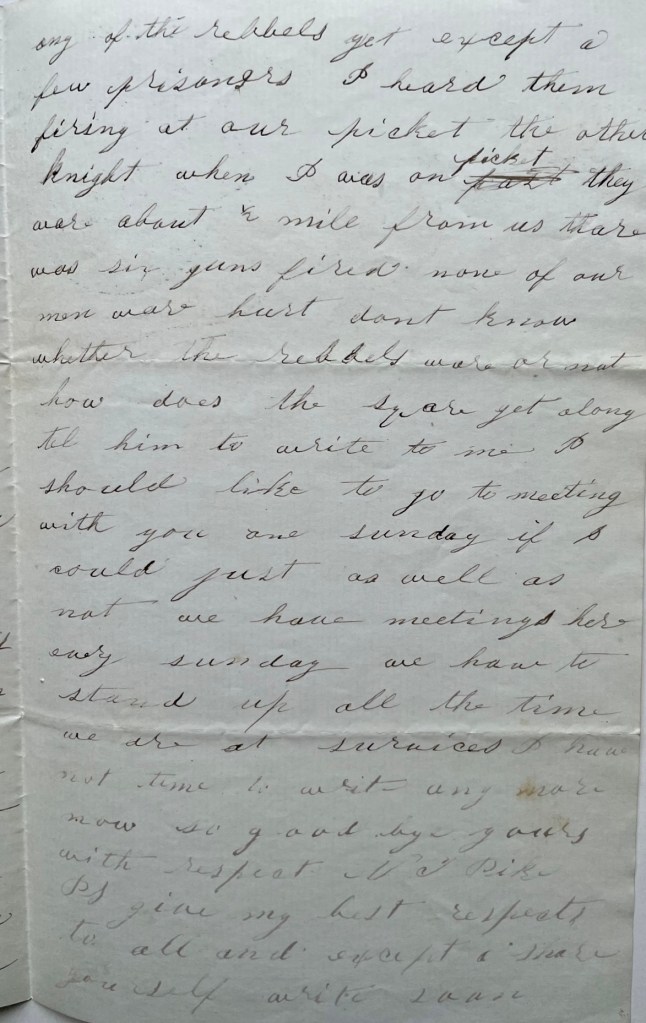 any of the rebbels yet except a
few prisoners I heard them
firing at our picket the other
knight when I was on picket they
ware about ½ mile from us thare
was six guns fired none of our
men ware hurt dont know
whether the rebbels ware or not
how does the sqare get along
tel him to write to me I
should like to go to meeting
with you one sunday if I
could just as well as
not we have meetings here
evry sunday we have to
stand up all the time
we are at survices I have
not time to writ any more
now so good bye yours
with respect N J Pike
PS give my best respects
to all and except a share
yourself write soon